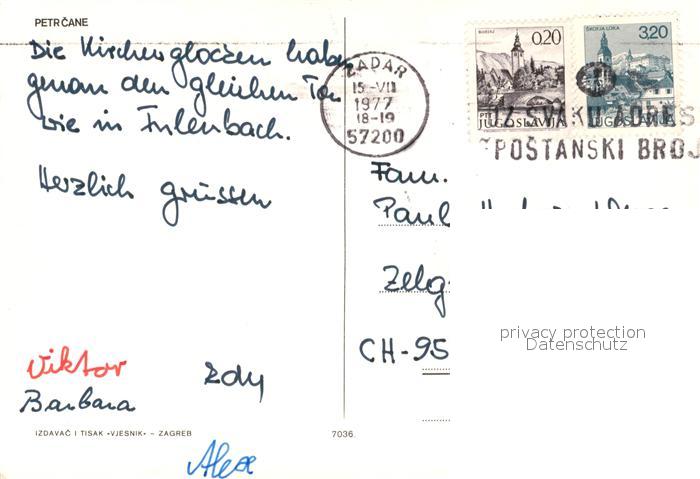 PETRČANE
Die Kirchenglocken haben
genau den gleichen Ton
wie in
Herzlich grüssen
Viktor
Barbara
Alex
IZDAVAČ I TISAK »VJESNIK« – ZAGREB
7036.
ZADAR
15-VII
1977
18-19
57200
0,20
JUGOSLAVIJA
ŠKOFJA LOKA
3,20
JUGOSLAVIJA
UZ SVAKU ADRES
POŠTANSKI BROJ
Fam.
Paul
Zelg
CH-95
privacy protection
Datenschutz